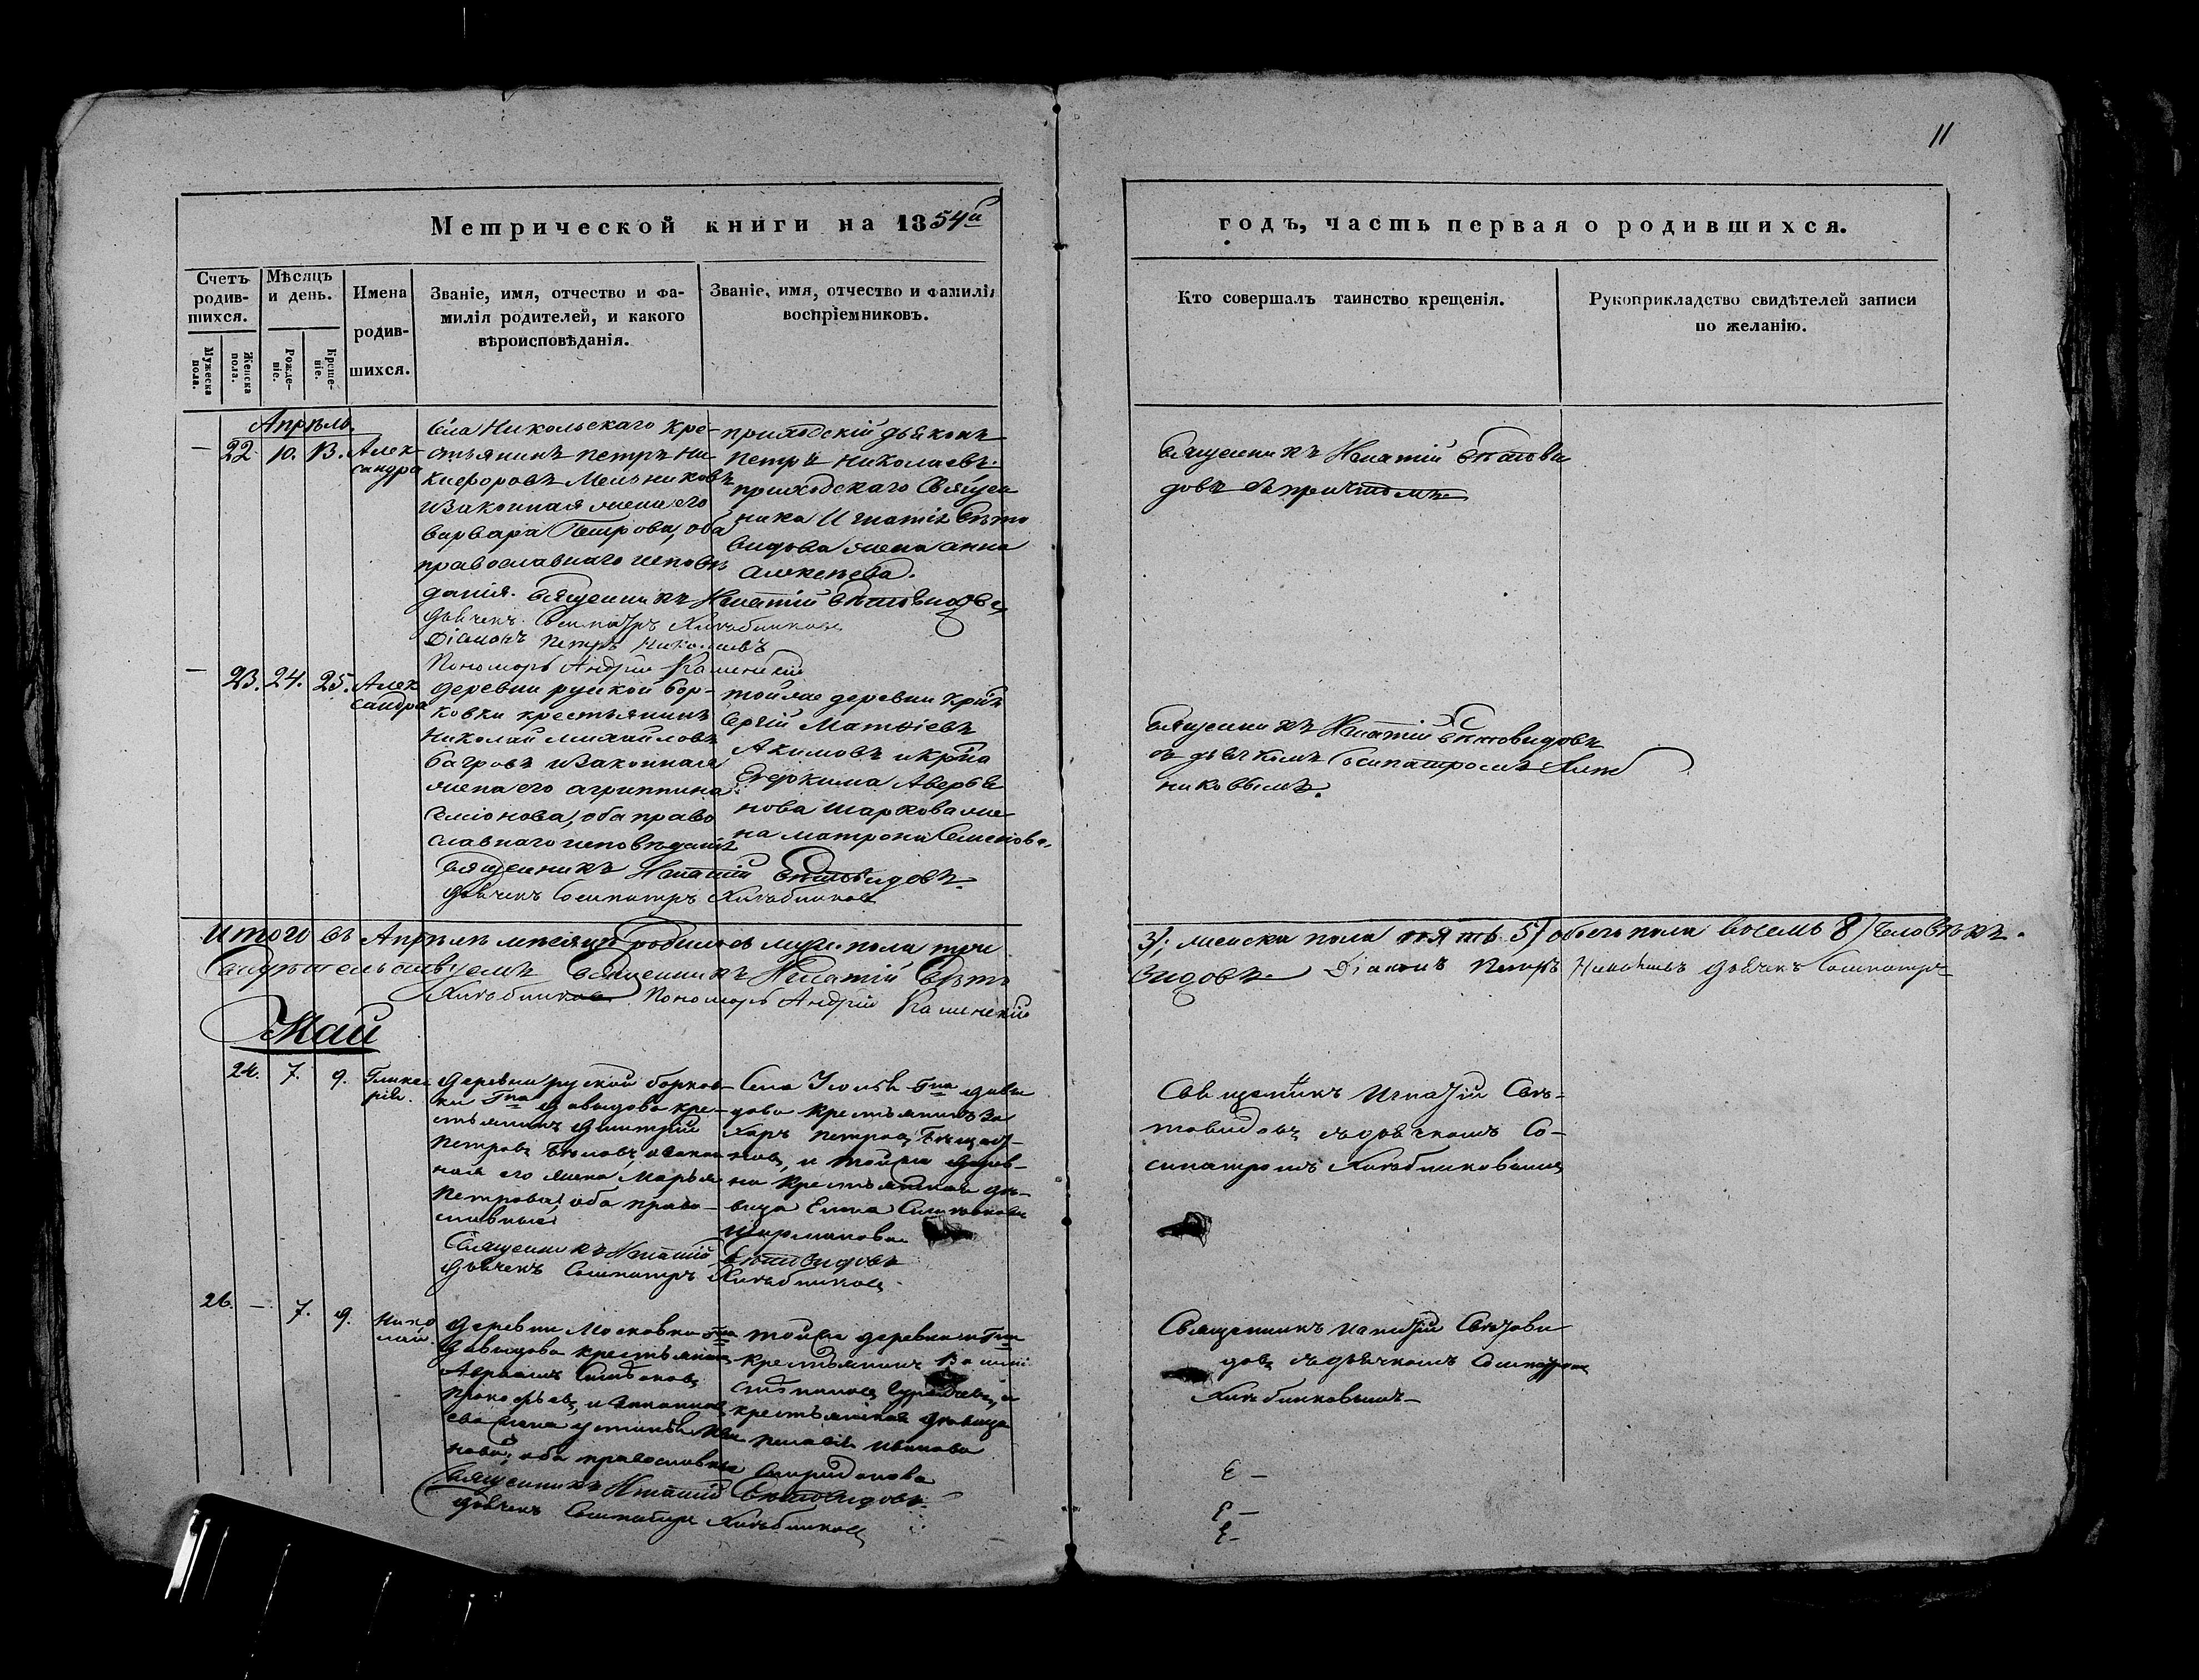 11
Метрической книги на 1854й
годъ, часть первая о родившихся.
Счетъ родив-шихся.
Мужеска пола.
Женска пола.
Мѣсяцъ и день.
Рожде-ніе.
Креще-ніе.
Имена родив-шихся.
Званіе, имя, отчество и фа-
милія родителей, и какого
вѣроисповѣданія.
Званіе, имя, отчество и фамилія
воспріемниковъ.
Кто совершалъ таинство крещенія.
Рукоприкладство свидѣтелей записи
по желанію.
Апрѣль.
— 22. 10. 13. Алек
сандра
Села Никольскаго Кре-
стьянинъ Петръ Ни
кифоровъ Мельниковъ
и законная жена его
Варвара Петрова, оба
православнаго исповѣ
данія. Священникъ Игнатій Свѣтовидовъ
Дьячекъ Сосипатръ Хлѣбниковъ
Діаконъ Петръ Николаевъ
Пономарь Андрей Каменскій
приходскій дьяконъ
Петръ Николаевъ.
приходскаго Священ
ника Игнатія Свѣто
видова жена Анна
Алексѣева.
Священникъ Игнатій Свѣтови
довъ съ причтомъ
— 23. 24. 25. Алек
сандра
деревни руской Бор-
ковки крестьянинъ
Николай Михайловъ
Багровъ и законная
жена его Агриппина
Семіонова, оба право
славнаго исповѣданія
Священникъ Игнатій Свѣтовидовъ.
Дьячекъ Сосипатръ Хлѣбниковъ
тойже деревни
Сергій Матѳіевъ
Акимовъ и
Аверья
нова Шаркова же
на Матрона Семенова.
Священникъ Игнатій Свѣтовидовъ
съ дьячкомъ Сосипатромъ Хлѣб
никовымъ.
Итого въ Апрѣлѣ мѣсяцѣ родилось муж. пола три
3), женска пола пять 5) обоего пола восемь 8) человѣкъ.
Свидѣтельствуемъ Священникъ Игнатій Свѣто
видовъ Діаконъ Петръ Николаевъ Дьячекъ Сосипатръ
Хлѣбниковъ Пономарь Андрей Каменскій
Май
24. 7. 9. Глике
рія.
Деревни руской Борков-
ки Гна Давыдова кре-
стьянинъ Димитрій
Петровъ и закон
ная его жена Марья
Петрова, оба право-
славные
Священникъ Игнатій Свѣтовидовъ
Дьячекъ Сосипатръ Хлѣбниковъ
Села Гна Давы
дова крестьянинъ За
харъ Петровъ
и тойже дерев-
ни крестьянская дѣ-
вица Елена
Священникъ Игнатій Свѣ-
товидовъ съ дьячкомъ Со-
сипатромъ Хлѣбниковымъ
26. — 7. 9. Нико
лай.
Деревни Московки Гна
Давыдова крестьянинъ
Авраамъ
Прокофьевъ, и законная
его жена Устинья Ива
нова, оба православные
Священникъ Игнатій Свѣтовидовъ
Дьячекъ Сосипатръ Хлѣбниковъ
тойже деревни и Гна
крестьянинъ
крестьянская дѣвица
Пелагія Иванова
Спиридонова
Священникъ Игнатій Свѣтови
довъ съ дьячкомъ Сосипатромъ
Хлѣбниковымъ